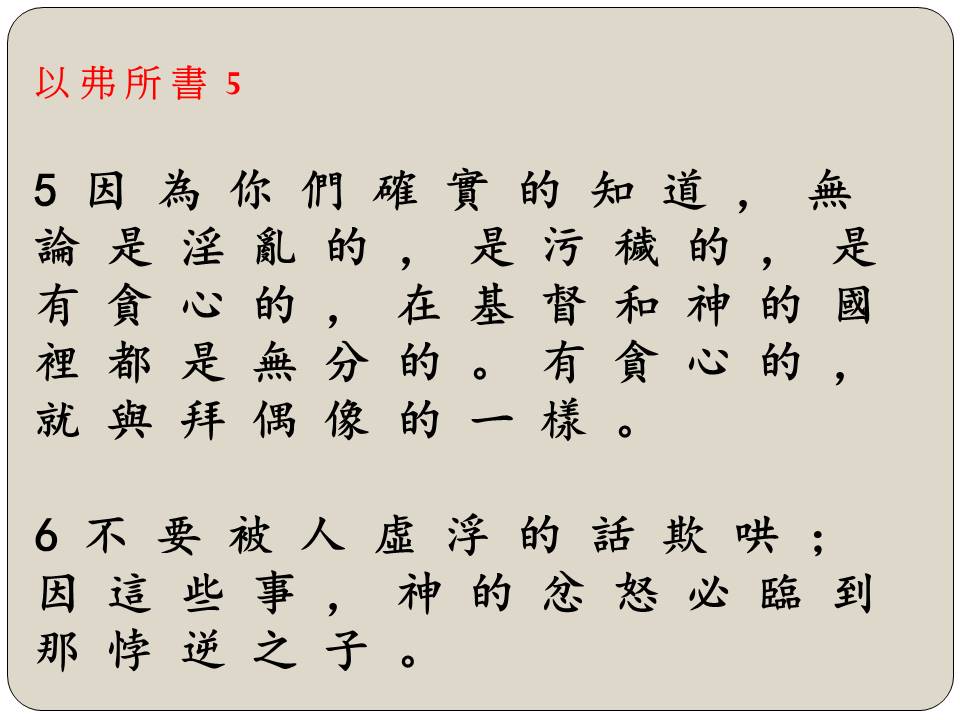 以弗所書 5
5 因為你們確實的知道，無
論是淫亂的，是污穢的，是
有貪心的，在基督和神的國
裡都是無分的。有貪心的，
就與拜偶像的一樣。
6 不要被人虛浮的話欺哄；
因這些事，神的忿怒必臨到
那悖逆之子。